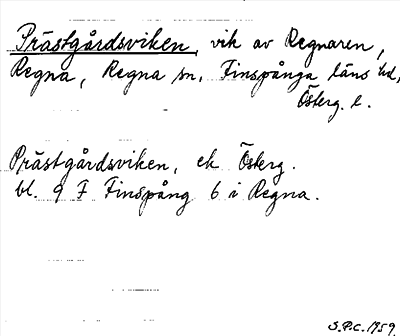 Prästgårdsviken, vik av Regnaren,
Regna, Regna sn, Finspånga läns hd,
Österg. l.
Prästgårdsviken, ek Österg.
bl. 9 F Finspång 6 i Regna.
S.P.C. 1959